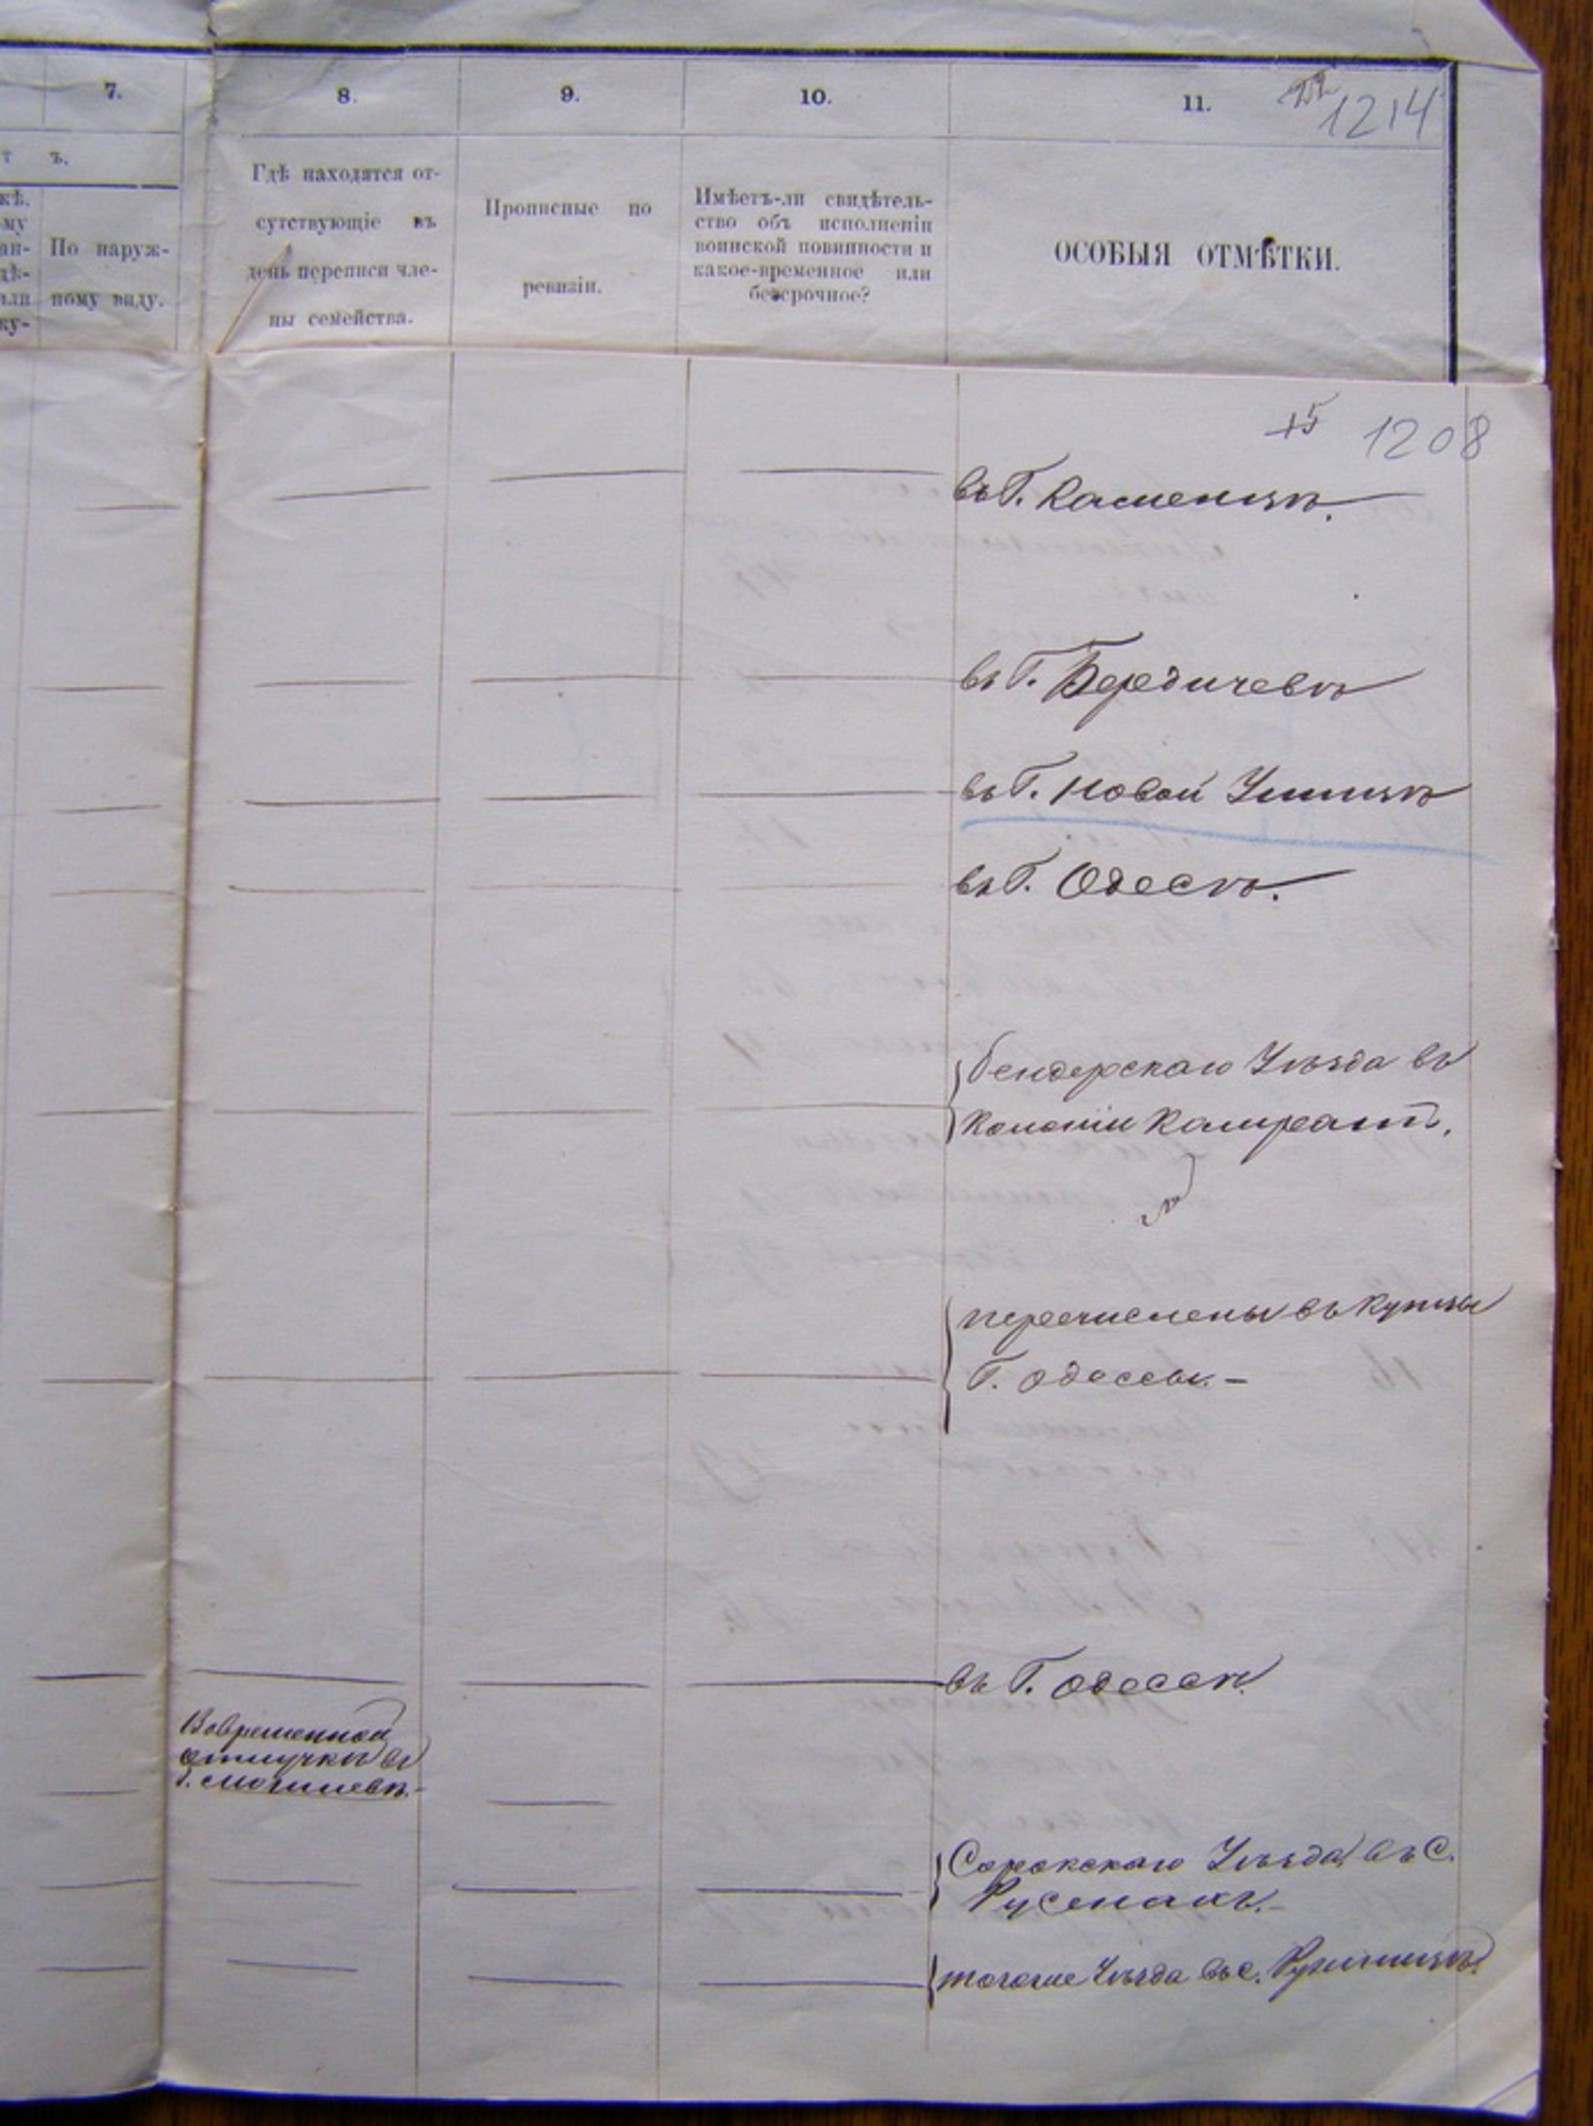 7.
8.
9.
10.
11.
1214
т ъ.
кѣ,
му
ан-
дѣ-
или
ку-
По наруж-
ному виду.
Гдѣ находятся от-
сутствующіе въ
день переписи чле-
ны семейства.
Прописные по
ревизіи.
Имѣетъ-ли свидѣтель-
ство объ исполненіи
воинской повинности и
какое-временное или
безсрочное?
ОСОБЫЯ ОТМѢТКИ.
15 1208
въ Г. Каменцѣ.
въ Г. Бердичевѣ
въ Г. Новой Ушицѣ
въ Г. Одесѣ.
бендерскаго Уѣзда въ
колоніи
перечислены въ Купцы
Г. Одессы. –
въ Г. Одессѣ.
Вовременной
отлучкѣ въ
г. Могилевѣ. –
Сорокскаго Уѣзда, въ С.
Русенахъ. –
тогоже Уѣзда въ с.